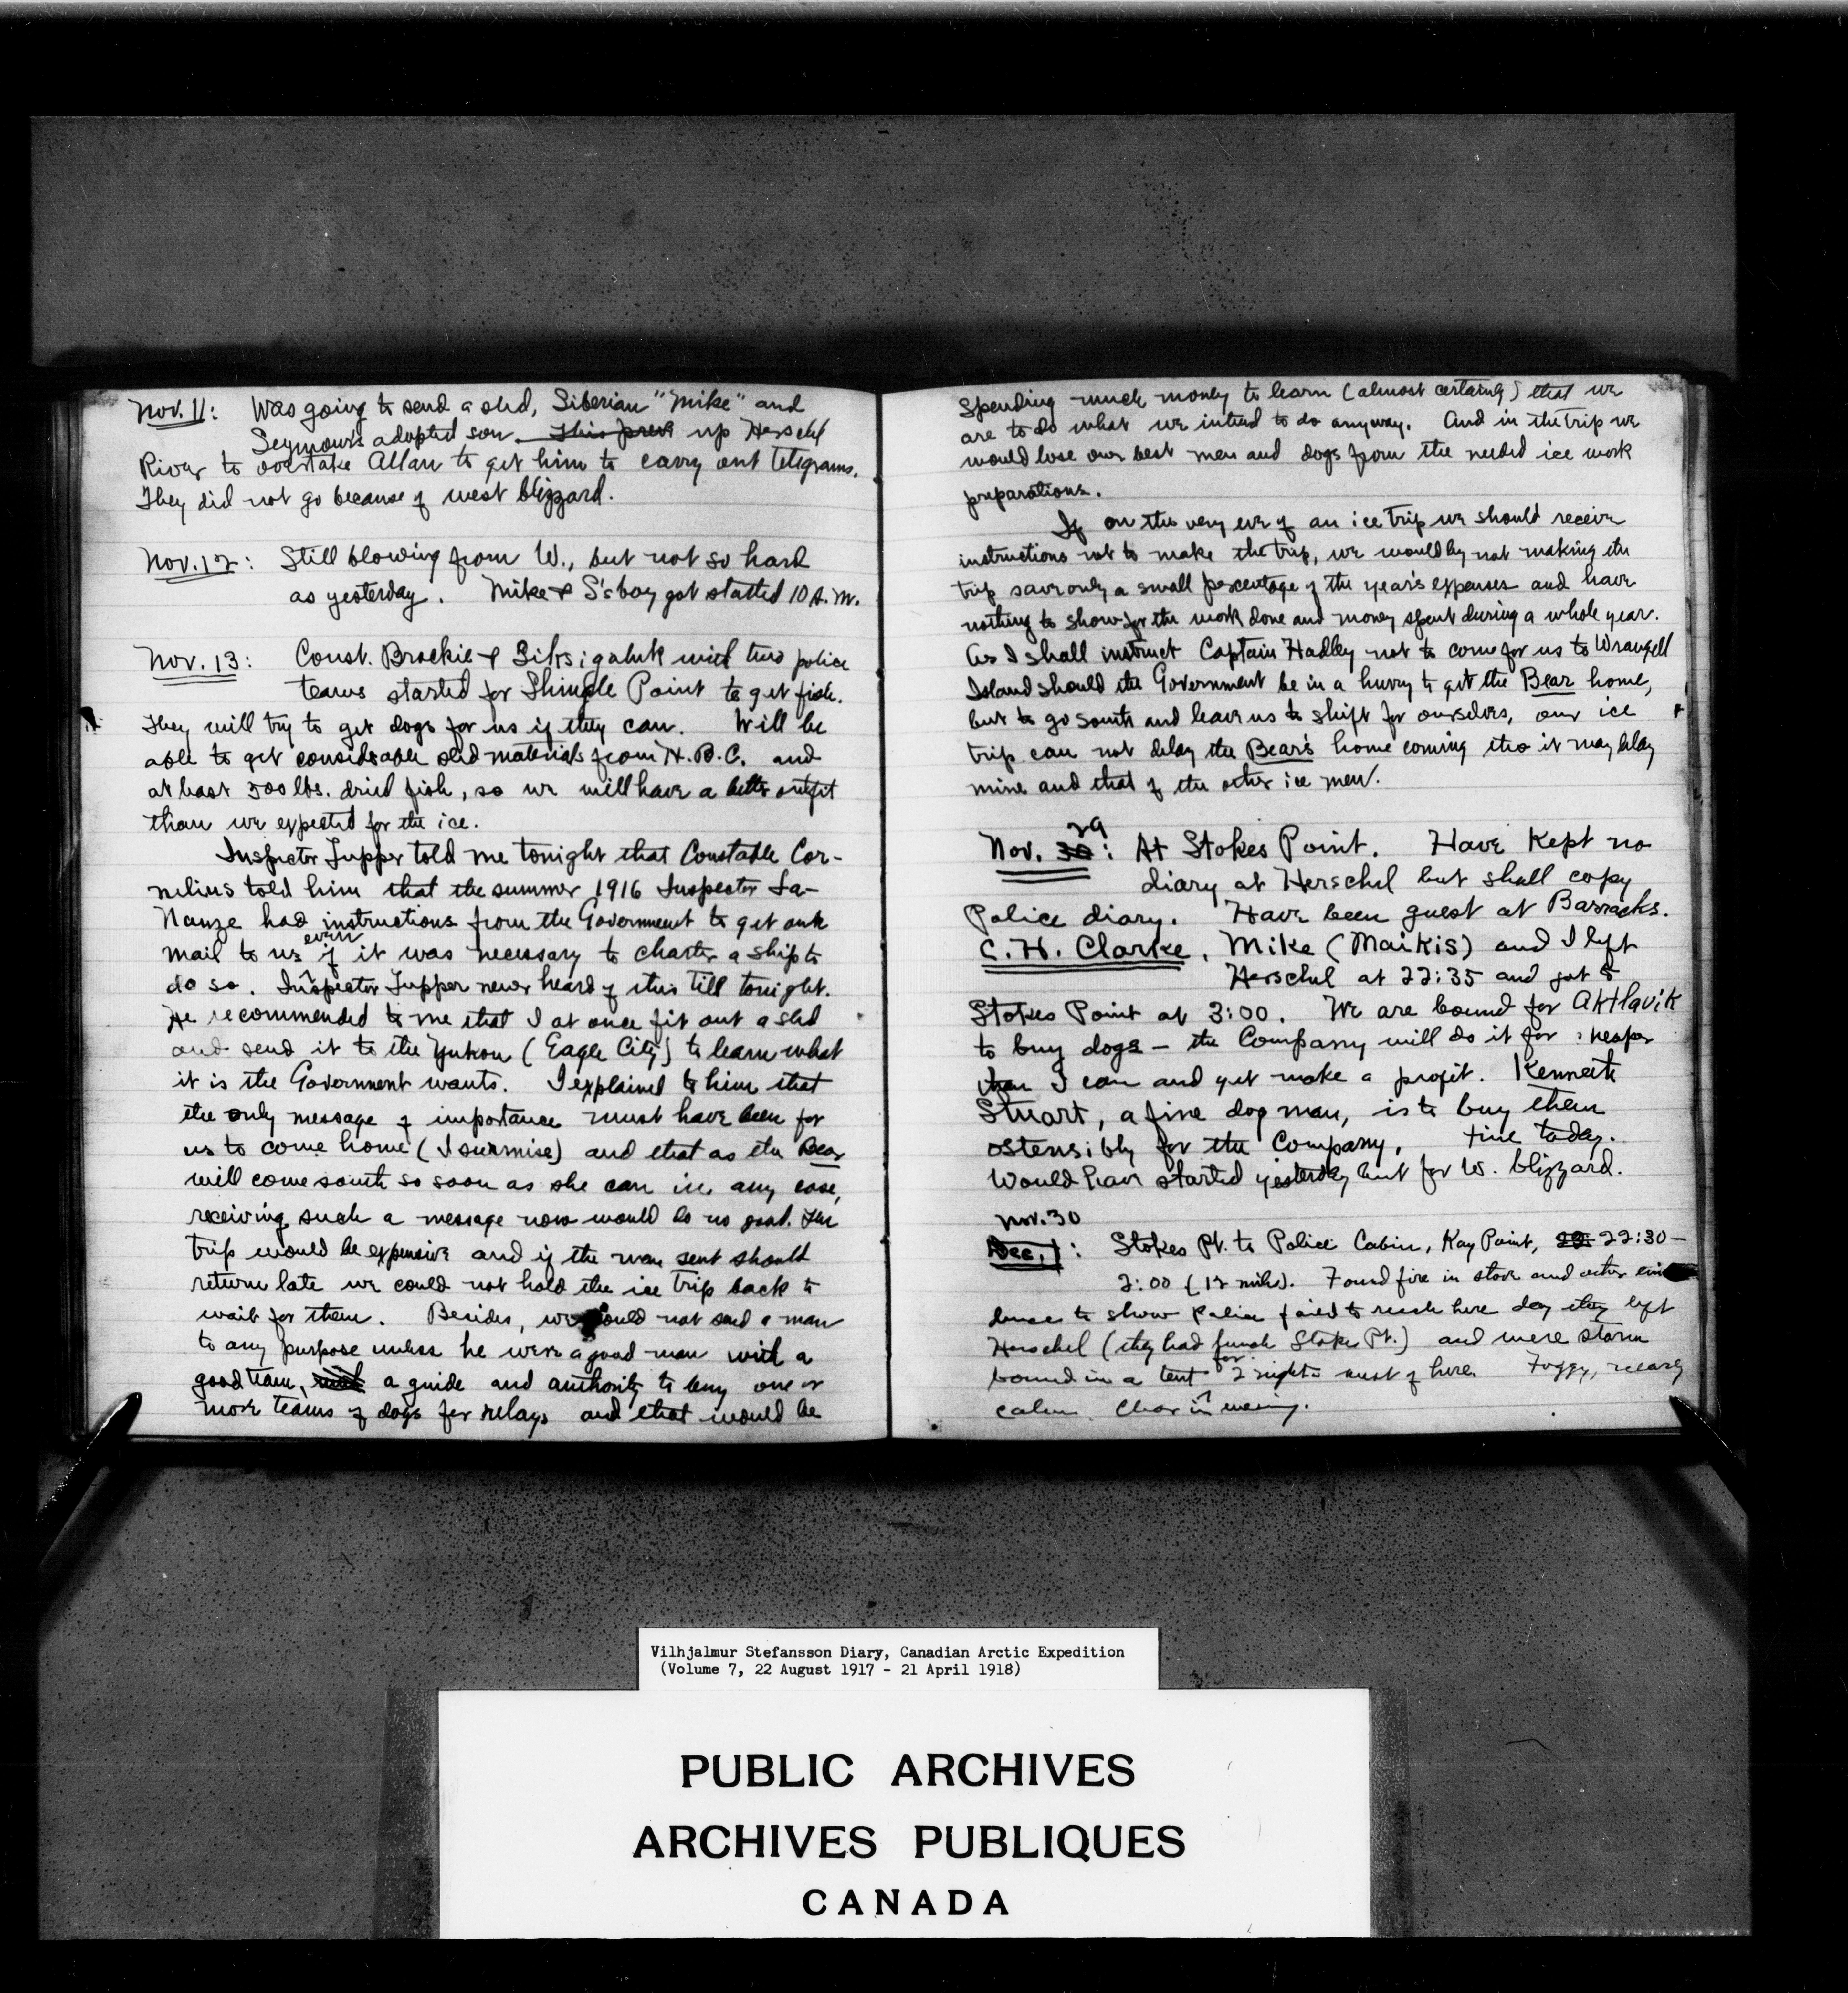 Nov. 11: Was going to send a sled, Siberian "Mike" and
Seymour's adopted son. This prev up Herschel
River to overtake Allan to get him to carry out telegrams.
They did not go because of west blizzard.
Nov. 12: Still blowing from W., but not so hard
as yesterday. Mike & S's boy got started 10 A.M.
Nov. 13: Const. Brockie & Siksigaluk with two police
teams started for Shingle Point to get fish.
They will try to get dogs for us if they can. Will be
able to get considerable sled materials from H.B.C. and
at least 500 lbs. dried fish, so we will have a better outfit
than we expected for the ice.
Inspector Tupper told me tonight that Constable Cor-
nelius told him that the summer 1916 Inspector La-
Nauze had instructions from the Government to get our
mail to us even if it was necessary to charter a ship to
do so. Inspector Tupper never heard of this till tonight.
He recommended to me that I at once fit out a sled
and send it to the Yukon (Eagle City) to learn what
it is the Government wants. I explained to him that
the only message of importance must have been for
us to come home (I surmise) and that as the Bear
will come south so soon as she can in any case,
receiving such a message now would do no good. The
trip would be expensive and if the man sent should
return late we could not hold the ice trip back to
wait for them. Besides, we could not send a man
to any purpose unless he were a good man with a
good team, a guide and authority to buy one or
more teams of dogs for relays and that would be
spending much money to learn (almost certainly) that we
are to do what we intend to do anyway. And in the trip we
would lose our best men and dogs from the needed ice work
preparations.
If on the very eve of an ice trip we should receive
instructions not to make the trip, we would by not making the
trip save only a small percentage of the year's expenses and have
nothing to show for the work done and money spent during a whole year.
As I shall instruct Captain Hadley not to come for us to Wrangell
Island should the Government be in a hurry to get the Bear home,
but to go south and leave us to shift for ourselves, our ice
trip can not delay the Bear's home coming tho it may delay
mine and that of the other ice men.
Nov. 30 29: At Stokes Point. Have kept no
diary at Herschel but shall copy
Police diary. Have been guest at Barracks.
C. H. Clarke, Mike (Maikis) and I left
Herschel at 22:35 and got to
Stokes Point at 3:00. We are bound for Aklavik
to buy dogs – the Company will do it for cheaper
than I can and yet make a profit. Kenneth
Stuart, a fine dog man, is to buy them
ostensibly for the Company. Fine today.
Would have started yesterday but for W. blizzard.
Nov. 30
Dec. 1: Stokes Pt. to Police Cabin, Kay Point, 22:30–
2:00 (12 miles). Found fire in stove and other evi-
dence to show police failed to reach here day they left
Herschel (they had lunch Stokes Pt.) and were storm
bound in a tent for 2 nights west of here. Foggy, nearly
calm. Clear in evening.
Vilhjalmur Stefansson Diary, Canadian Arctic Expedition
(Volume 7, 22 August 1917 - 21 April 1918)
PUBLIC ARCHIVES
ARCHIVES PUBLIQUES
CANADA